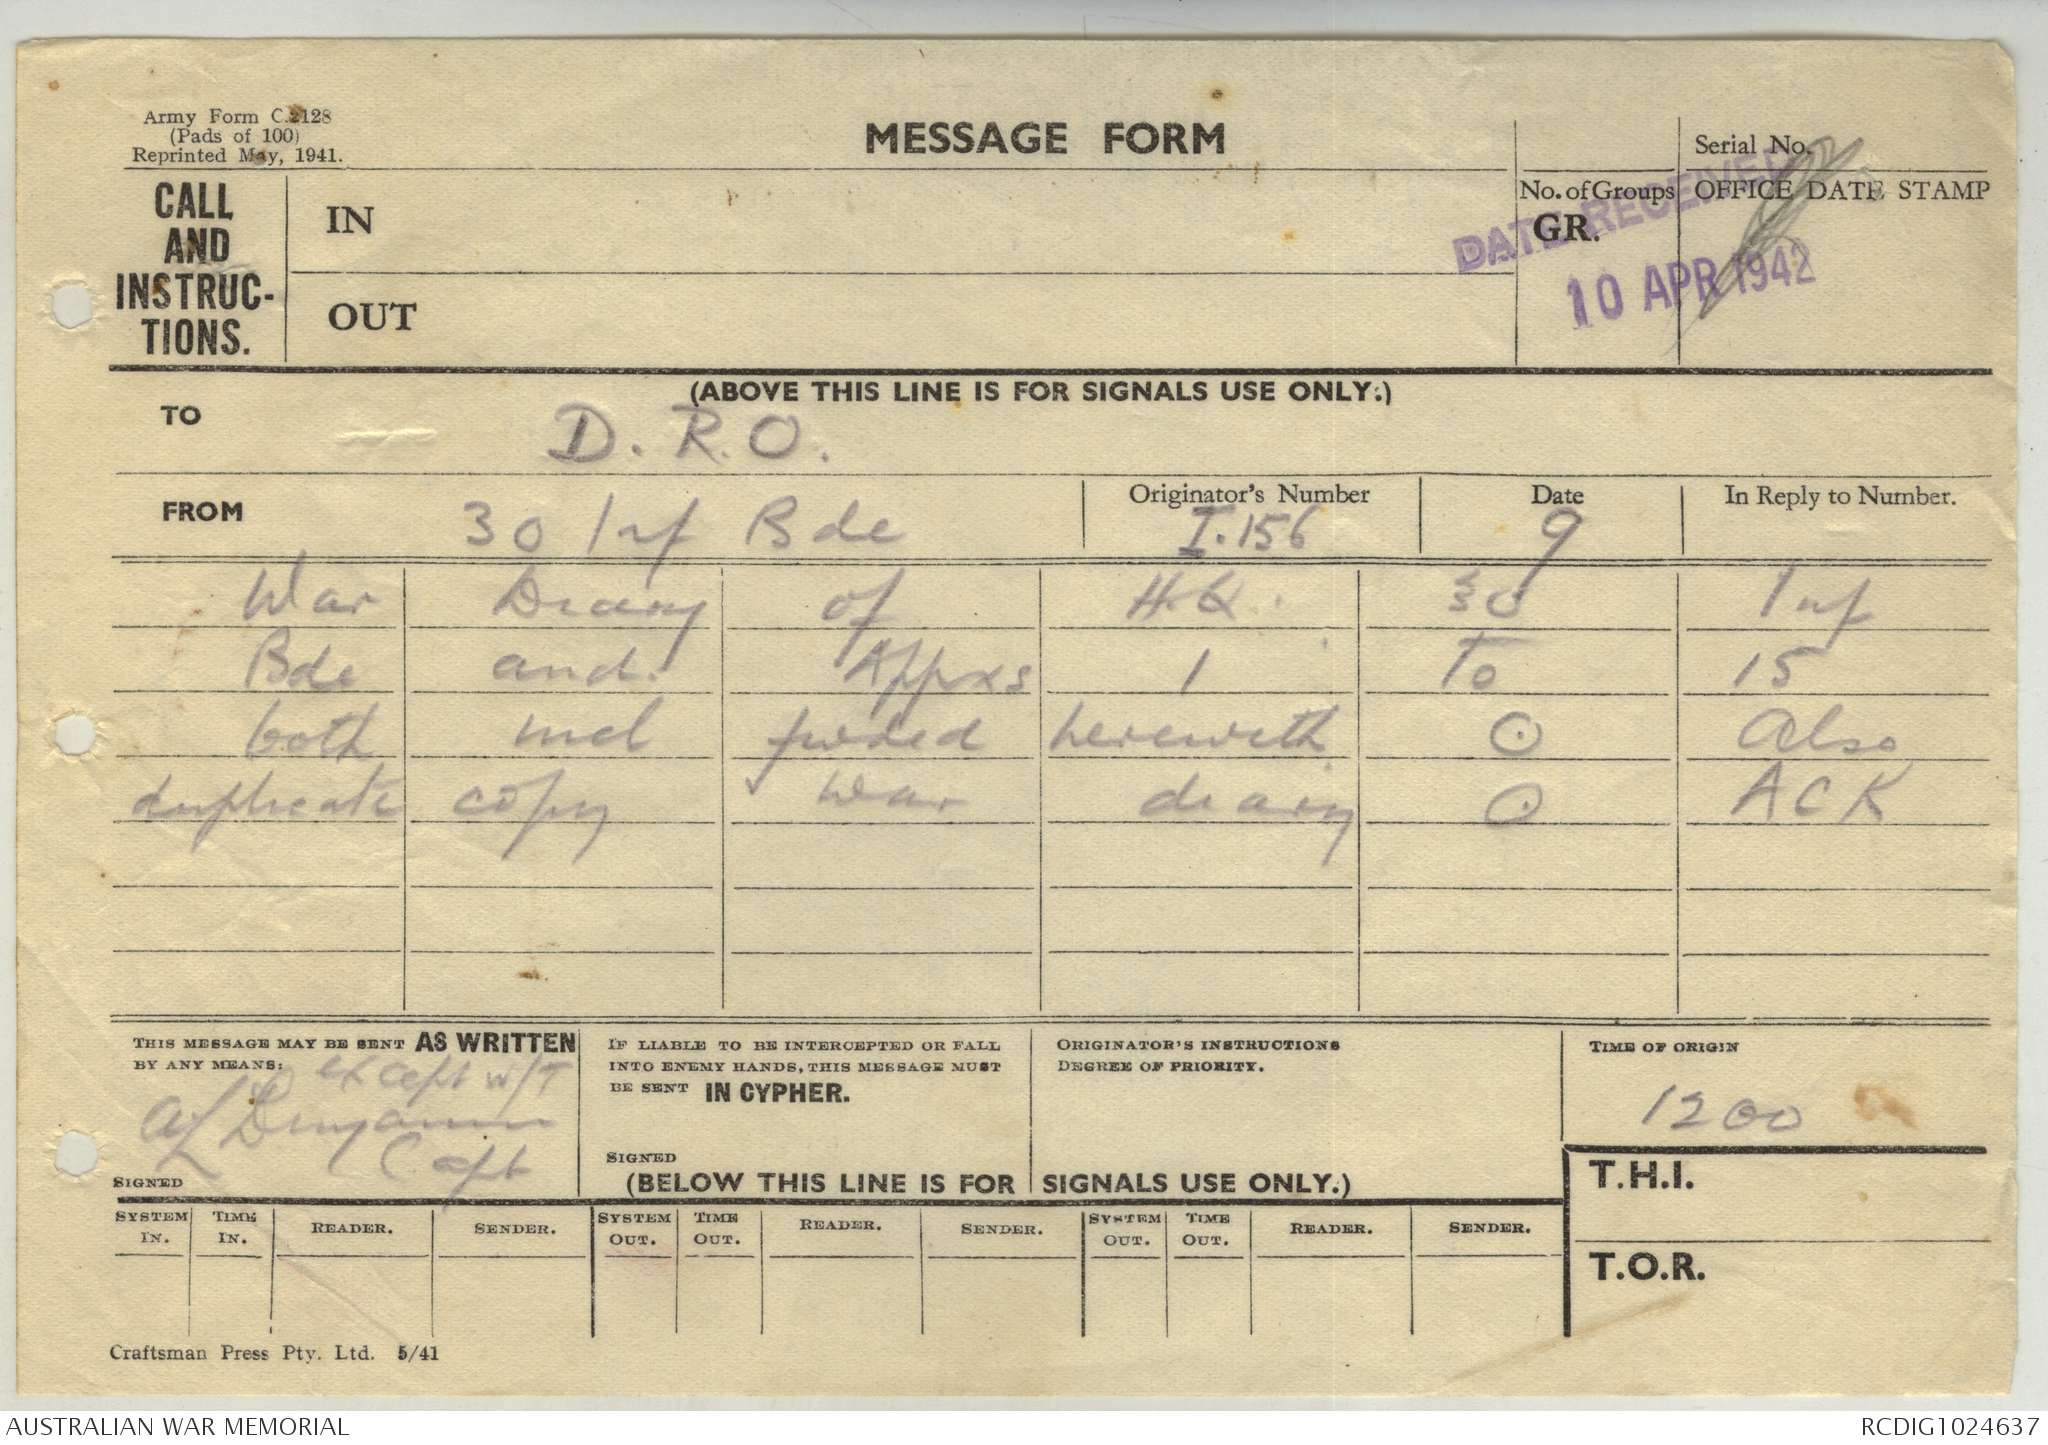 Army Form C.2128
(Pads of 100)
Reprinted May, 1941.
MESSAGE FORM
Serial No.
CALL AND INSTRUC-TIONS.
IN
OUT
No. of Groups
GR.
OFFICE DATE STAMP
DATE RECEIVED
10 APR 1942
(ABOVE THIS LINE IS FOR SIGNALS USE ONLY.)
TO D.R.O.
FROM 30 Inf Bde
Originator's Number
I.156
Date
9
In Reply to Number.
War Diary of HQ. 30 Inf
Bde and Appxs 1 To 15
both incl fwded herewith ⊙ Also
duplicate copy war diary ⊙ ACK
THIS MESSAGE MAY BE SENT AS WRITTEN
BY ANY MEANS:
except W/T
Benjamin
Capt
SIGNED
IF LIABLE TO BE INTERCEPTED OR FALL
INTO ENEMY HANDS, THIS MESSAGE MUST
BE SENT IN CYPHER.
SIGNED
ORIGINATOR'S INSTRUCTIONS
DEGREE OF PRIORITY.
TIME OF ORIGIN
1200
(BELOW THIS LINE IS FOR SIGNALS USE ONLY.)
T.H.I.
T.O.R.
SYSTEM IN. TIME IN. READER. SENDER. SYSTEM OUT. TIME OUT. READER. SENDER. SYSTEM OUT. TIME OUT. READER. SENDER.
Craftsman Press Pty. Ltd. 5/41
AUSTRALIAN WAR MEMORIAL
RCDIG1024637